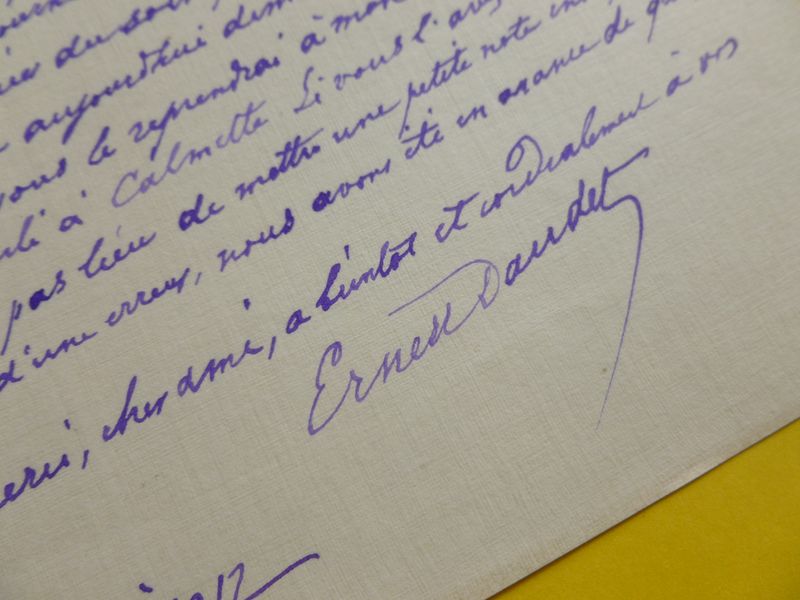 du soir,
aujourd'hui dim
vous le reprendrai à mon
à Calmette Si vous l'avez
pas lieu de mettre une petite note in
d'une erreur, nous avons été en avance de qu
merci, cher ami, à bientôt et cordialement à vs
Ernest Daudet